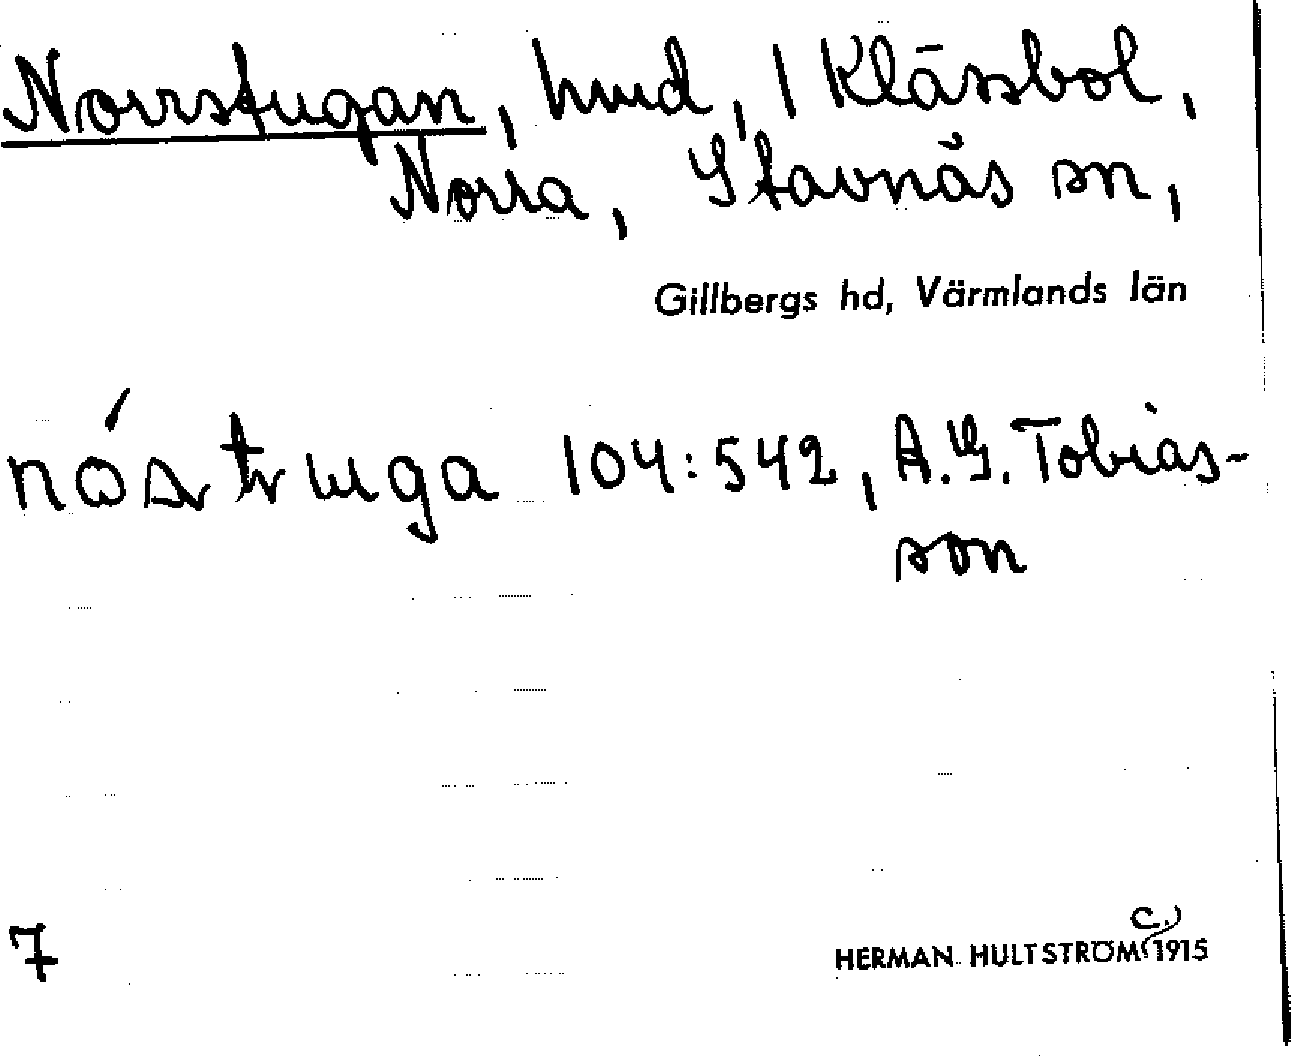 Norrstugan, hmd, I Klässbol,
Norra, Stavnäs sn,
Gillbergs hd, Värmlands län
104:542, A.G. Tobias-
son
7
HERMAN HULTSTRÖM (c.) 1915